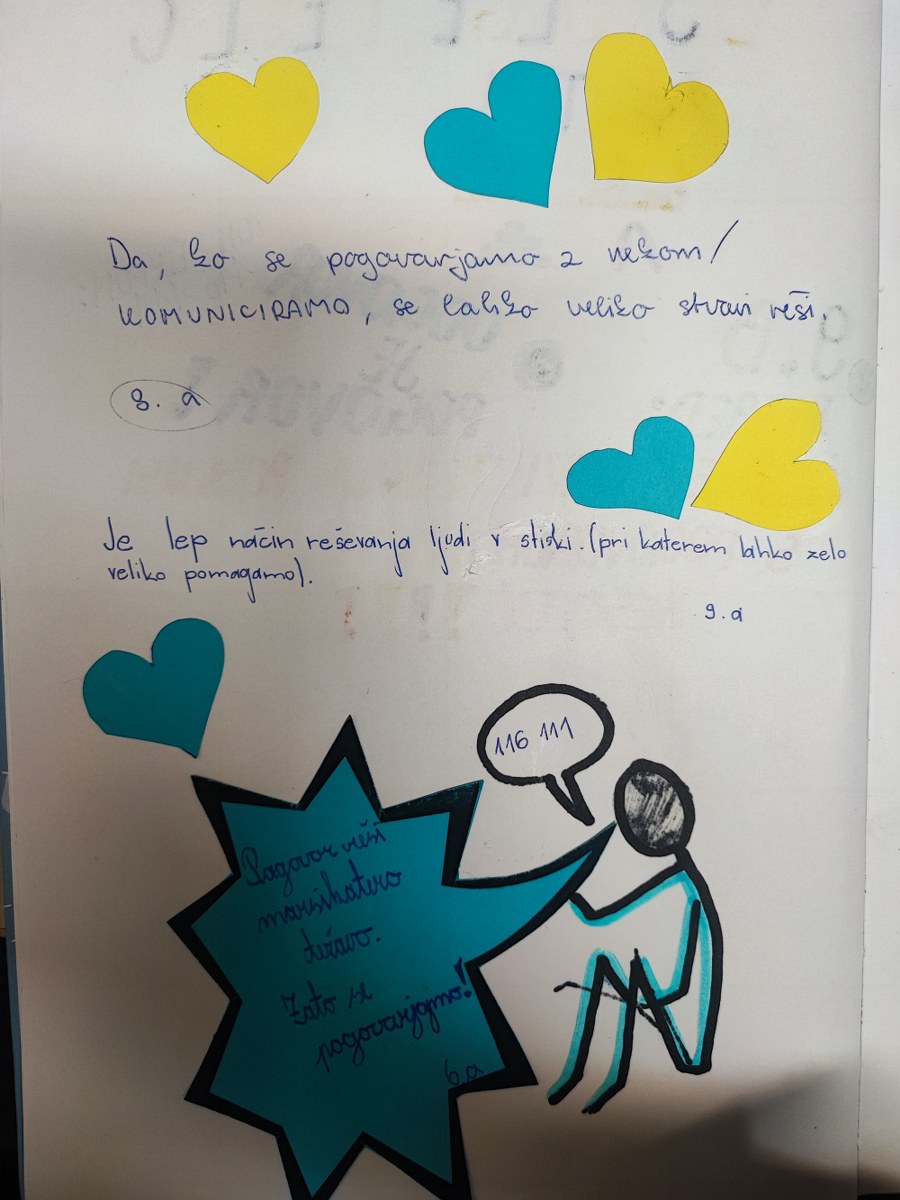 Da, ko se pogovarjamo z nekom/
KOMUNICIRAMO, se lahko veliko stvari reši.
8. a
Je lep način reševanja ljudi v stiski. (pri katerem lahko zelo
veliko pomagamo).
9. a
116 111
Pogovor reši
marsikatero
težavo.
Zato se
pogovarjajmo!
6. a